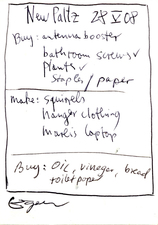 New Paltz 28 V 08
Buy: antenna booster
bathroom screws ✓
Plants ✓
Staples / paper
make: squirrels
hanger clothing
Mark's laptop
Buy: Oil, vinegar, bread
toilet paper